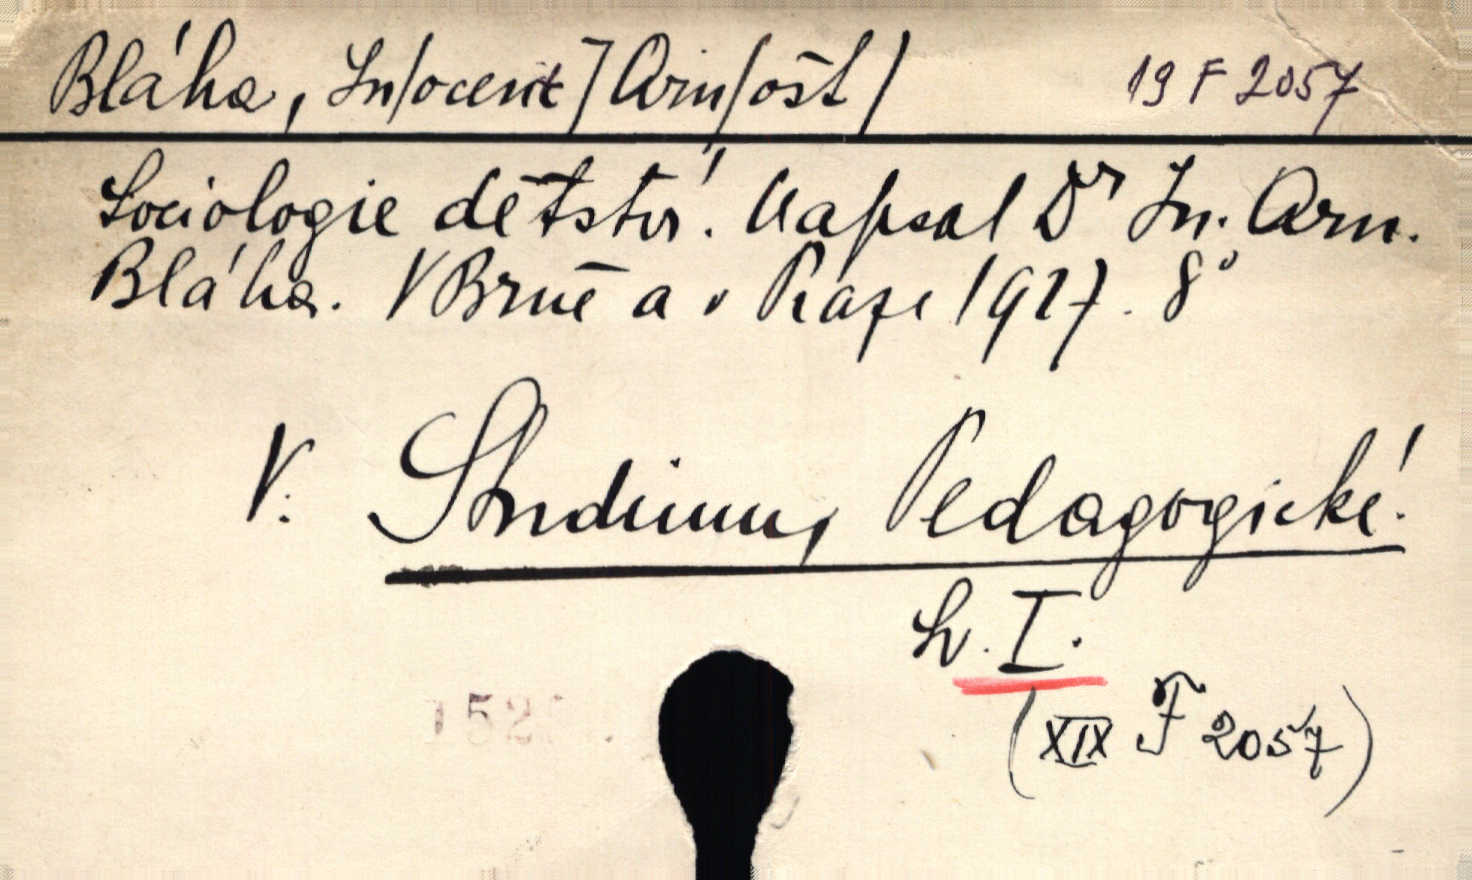 Bláha, In/ocent/ Arn/ošt/ 19 F 2057
Sociologie dětství. Napsal Dr In. Arn.
Bláha. V Brně a v Praze 1927. 8°
V. Studium, Pedagogické.
Sv. I.
(XIX F 2057)